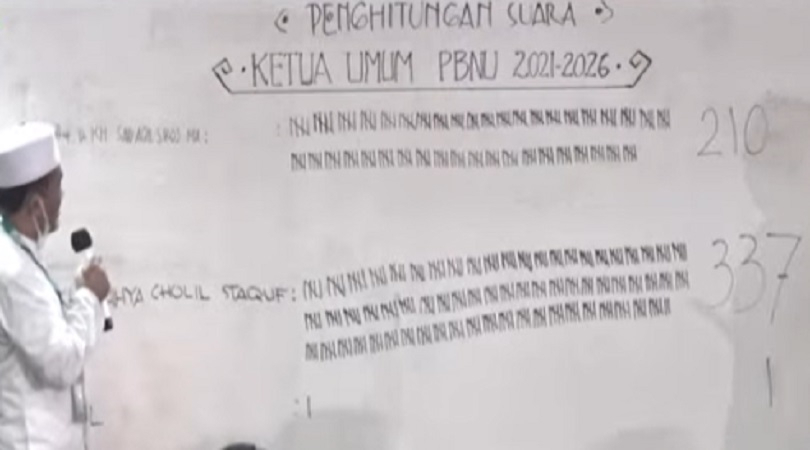 PENGHITUNGAN SUARA
KETUA UMUM PBNU 2021-2026
KH SAID AQIL SIROJ MA : 210
HYA CHOLIL STAQUF : 337
L : | 1